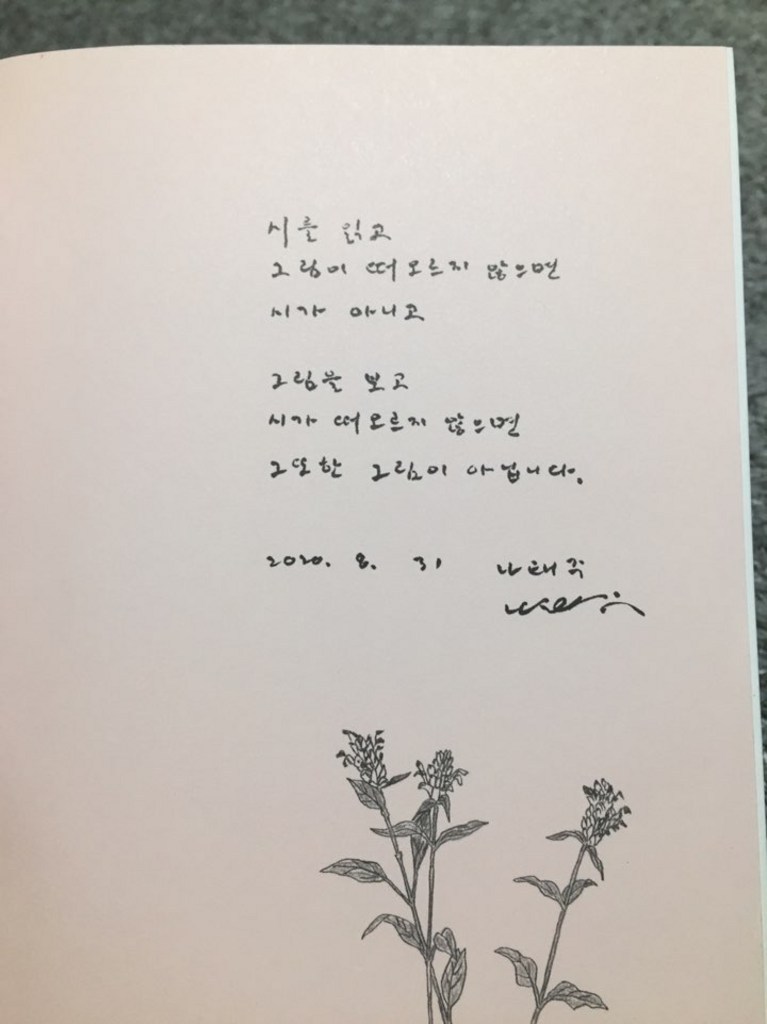 시를 읽고
그림이 떠오르지 않으면
시가 아니고
그림을 보고
시가 떠오르지 않으면
그또한 그림이 아닙니다.
2020. 8. 31 나태주